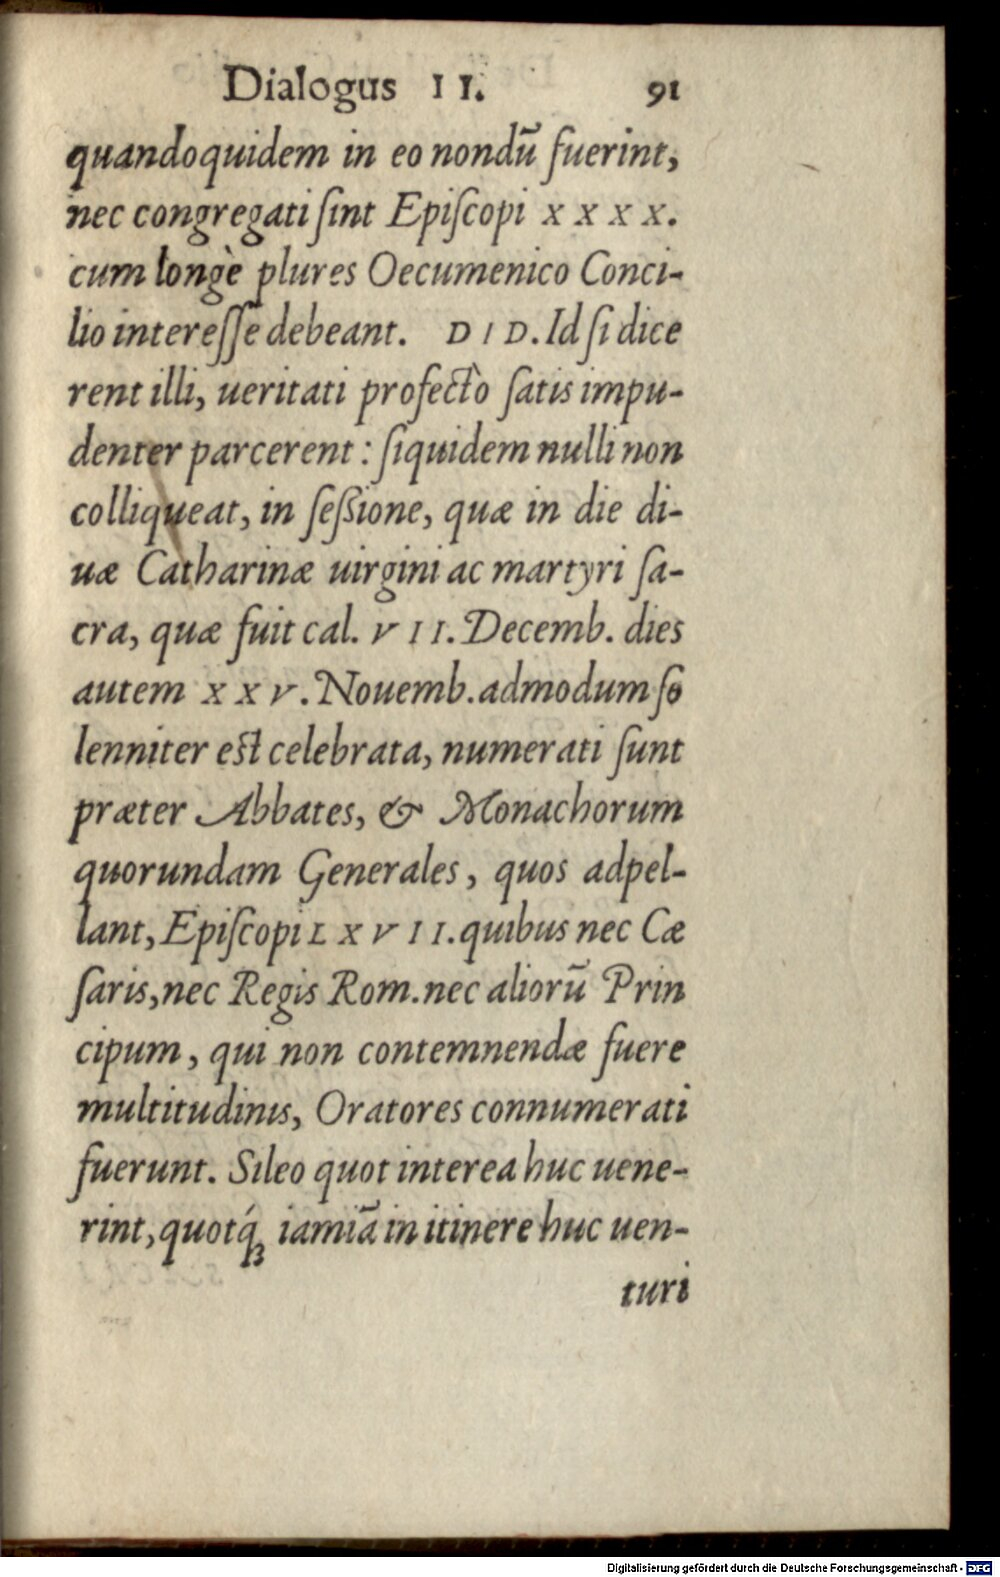 Dialogus II. 91
quandoquidem in eo nondū fuerint,
nec congregati ſint Epiſcopi XXXX.
cum longè plures Oecumenico Conci-
lio intereſſe debeant. DID. Id ſi dice
rent illi, ueritati profectò ſatis impu-
denter parcerent: ſiquidem nulli non
colliqueat, in ſeßione, quæ in die di-
uæ Catharinæ uirgini ac martyri ſa-
cra, quæ fuit cal. VII. Decemb. dies
autem XXV. Nouemb. admodum ſo
lenniter est celebrata, numerati ſunt
præter Abbates, & Monachorum
quorundam Generales, quos adpel-
lant, Epiſcopi LXVII. quibus nec Cæ
ſaris, nec Regis Rom. nec aliorū Prin
cipum, qui non contemnendæ fuere
multitudinis, Oratores connumerati
fuerunt. Sileo quot interea huc uene-
rint, quotq́; iamiā in itinere huc uen-
turi
Digitalisierung gefördert durch die Deutsche Forschungsgemeinschaft - DFG